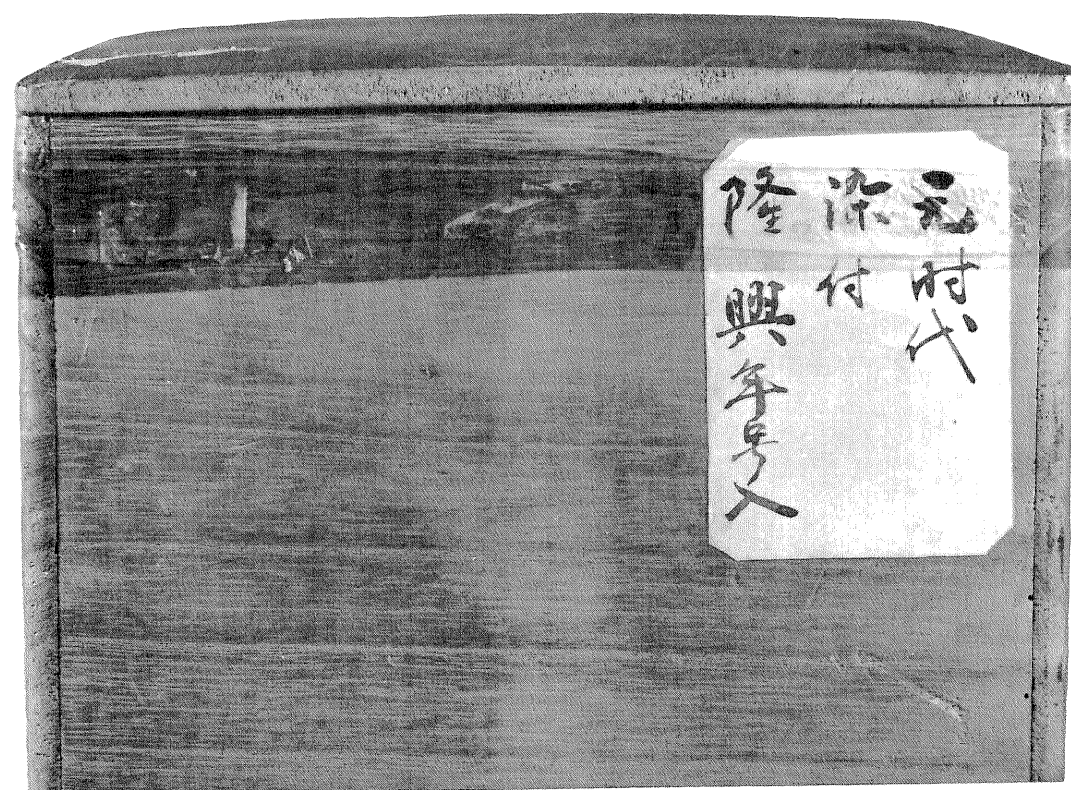 元时代
染付
隆興年号入